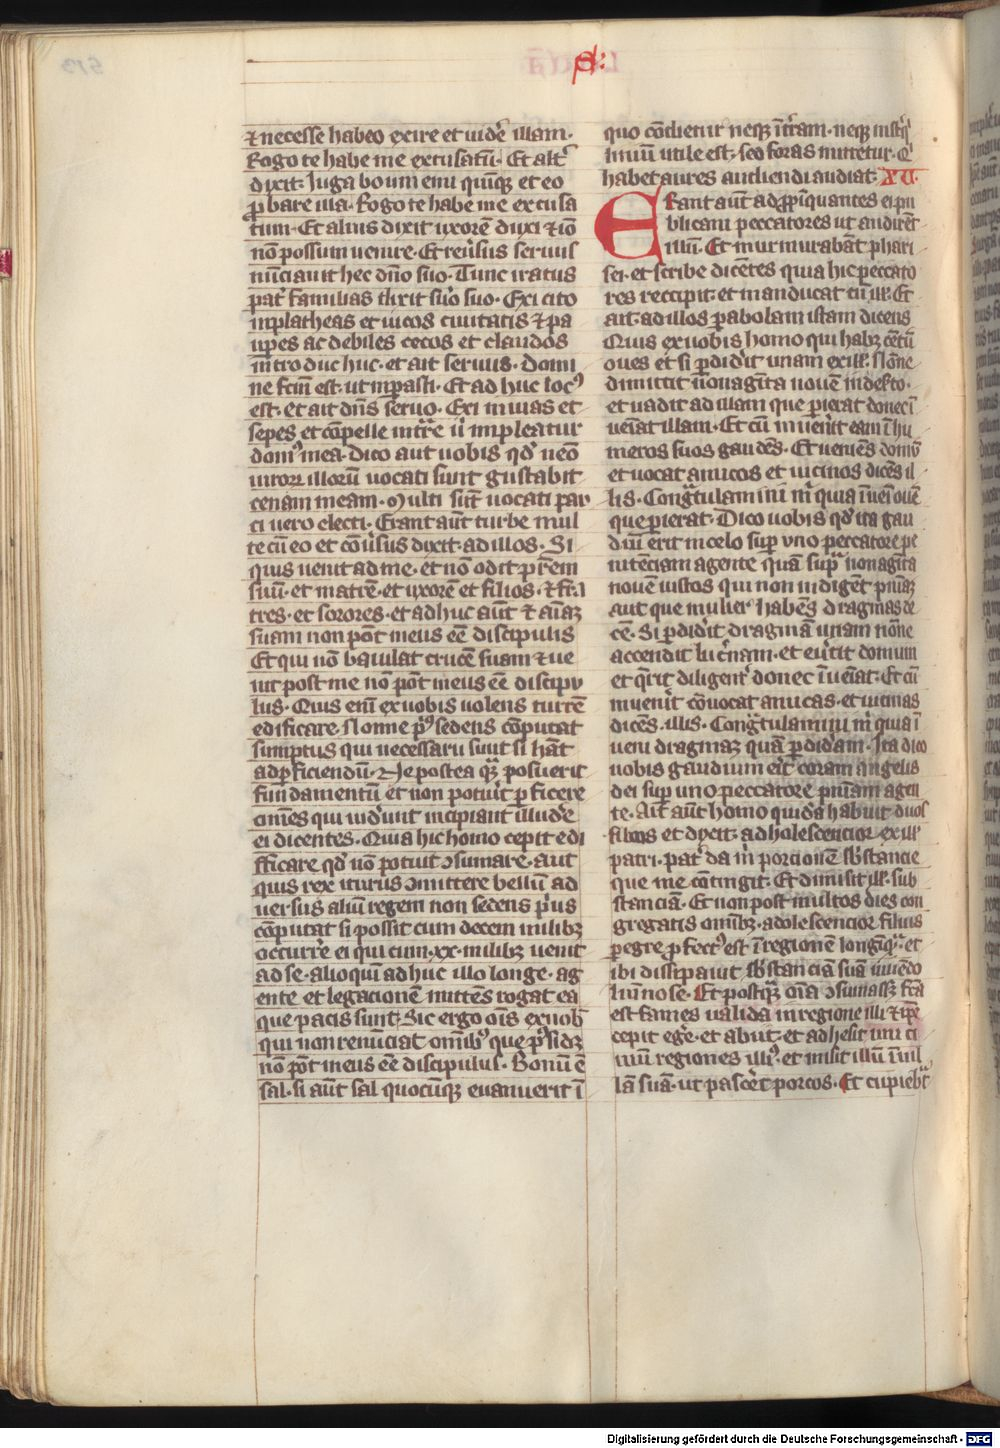 S:
⁊ necesse habeo exire et uid'e illam·
Rogo te habe me excusatū· Et alt'
dixit· Iuga boum emi quīq̄ et eo
ꝓbare illa· Rogo te habe me excusa
tum· Et alius dixit uxorē duxi ⁊ iō
nō possum uenire· Et reu'sus seruus
nūciauit hec dn̄o suo· Tunc iratus
pat' familias dixit s'uo suo· Exi cito
in platheas et uicos ciuitatis ⁊ pa
uꝑes ac debiles cecos et claudos
introduc huc· et ait seruus· Domi
ne fc̄m est· ut inꝑasti· Et adhuc loc⁹
est· Et ait dn̄s seruo· Exi in uias et
sepes et cōpelle int're ut impleatur
dom⁹ mea· Dico aut uobis qd' nēo
uiroꝝ illorū uocati sunt gustabit
cenam meam· Multi sūt uocati pau
ci uero electi· Erant aūt turbe mul
te cū eo et cōu'sus dixit· ad illos· Si
quis uenit ad me· et nō odit pr̄em
suū· et matrē· et uxorē et filios· ⁊ fr̄a
tres· et sorores· et adhuc aūt ⁊ aīaꝫ
suam non pōt meus eē discipulis
Et qui nō baiulat crucē suam ⁊ ue
nit post me nō pōt meus eē discipu
lus· Quis eni ex uobis uolens turrē
edificare· Nonne p'⁹ sedens cōputat
sumptus qui necessarii sunt si hāt
ad ꝑficiendū· Ne postea qꝫ posuerit
fundamentū et non potu'it ꝑficere
om̄es qui uid'unt incipiant illud'e
ei dicentes· Quia hic homo cepit edi
fficare qd' nō potuit ↄsumare· Aut
quis rex iturus ↄmittere bellū ad
uersus aliū regem non sedens p'us
cōputat si possit cum decem milibꝫ
occurr'e ei qui cum ·xx· milibꝫ uenit
ad se· alioqui adhuc illo longe· ag
ente et legacionē mittēs rogat ea
que pacis sunt· Sic ergo oīs ex uob'
qui non renūciat· omib⁹ que p'sidꝫ
nō pōt meus eē discipulus· Bonū ē
sal· si aūt sal quocūqꝫ euanuerit ī
quo cōdietur neqꝫ ī t'ram· neqꝫ in st'q'
linū utile est· sed foras mittetur· Q'
habet aures audiendi audiat· XV·
Erant aūt adꝓpīquantes ei pu
blicani peccatores ut audirēt
illū· Et murmurabāt phari
sei· et scribe dicētes quia hic peccato
res reccipit· et manducat cū ill'· Et
ait· ad illos ꝑabolam istam dicens
Quis ex uobis homo qui habꝫ cētū
oues et si ꝑdid'it unam ex ill'· Nōne
dimittit nonagīta nouē in def'to·
et uadit ad illam que ꝑierat donec ī
ueīat illam· Et cū inuen'it eam ī hu
meros suos gaudēs· Et ueniēs domū
et uocat amicos et uicinos dicēs il
lis· Congr̄tulamini m' quia īueī ouē
que ꝑierat· Dico uobis qd' ita gau
diū erit in celo suꝑ vno peccatore pe
nitēciam agente quā sup' nonagīta
nouē iustos qui non indigēt pn̄iaꝫ
Aut que mulier habēs dragmas de
cē· Si ꝑdid'it dragmā unam nōne
accendit luc'nam· et eu'tit domum
et q'rit diligent' donec īueīat· Et cū
inuen'it cōuocat amicas· et uicinas
dicēs· illis· Congr̄tulamini m' quia ī
ueni dragmaꝫ quā ꝑdid'am· Ita dico
uobis gaudium erit' coram angelis
dei suꝑ uno peccatore pn̄iam agen
te· Ait aūt homo quidā habuit duos
filios et dixit· adholescencior ex ill'
patri· pat' da m' porcionē sb'stancie
que me cōtingit· Et diuisit ill' sub
stanciā· Et non post multos dies con
gregatis omībꝫ· adolescencior filius
ꝑegre ꝓfect⁹ est ī regionē longīq'· et
ibi dissipauit sb'stanciā suā uiuēdo
luxuriose· Et postqꝫ oīa ↄsumassꝫ fc̄a
est fames ualida in regione illi ⁊ ip̄e
cepit eg'e· et abiit· et adhesit uni ci
uiū regiones illi⁹· et misit illū ī uil
lā suā· ut pasc'et porcos· Et cupieb't
Digitalisierung gefördert durch die Deutsche Forschungsgemeinschaft - DFG